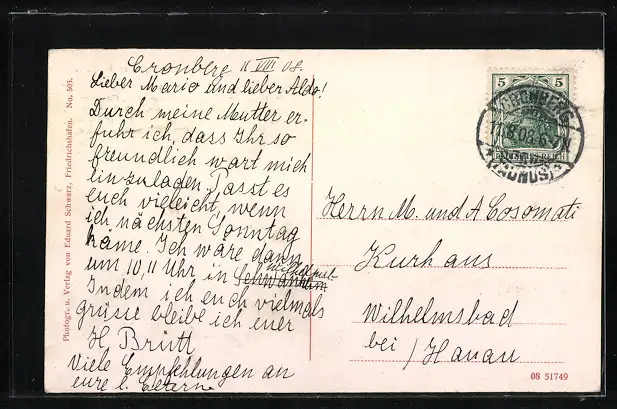 Cronberg 11 VIII 08.
Lieber Mario und lieber Aldo!
Durch meine Mutter er-
fuhr ich, dass Ihr so
freundlich wart mich
einzuladen. Passt es
euch vieleicht, wenn
ich nächsten Sonntag
käme. Ich wäre dann
um 10,11 Uhr in
Indem ich euch vielmals
grüsse bleibe ich euer
H. Brütt
Viele Empfehlungen an
eure l. Eltern
Photogr. u. Verlag von Eduard Schwarz, Friedrichshafen. No. 505.
5 5
DEUTSCHES REICH
CRONBERG
11.8.08.
(TAUNUS)
Herrn M. und A Cosomati
Kurhaus
Wilhelmsbad
bei / Hanau
08 51749